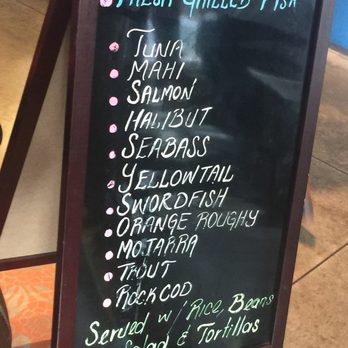 FRESH GRILLED FISH
TUNA
MAHI
SALMON
HALIBUT
SEABASS
YELLOWTAIL
SWORDFISH
ORANGE ROUGHY
MOJARRA
TROUT
ROCKCOD
Served w/ Rice, Beans
Salad & Tortillas